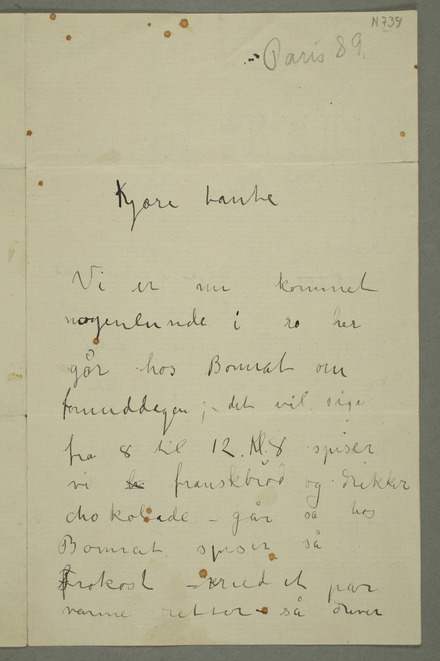 N739
Paris 89.
Kjære tante
Vi er nu kommet
nogenlunde i ro her
går hos Bonnat om
formiddagen; - det vil sige
fra 8 til 12. Kl. 8 spiser
vi franskbrød og drikker
chokolade - går så hos
Bonnat spiser så
Frokost - med et par
varme retter - så driver